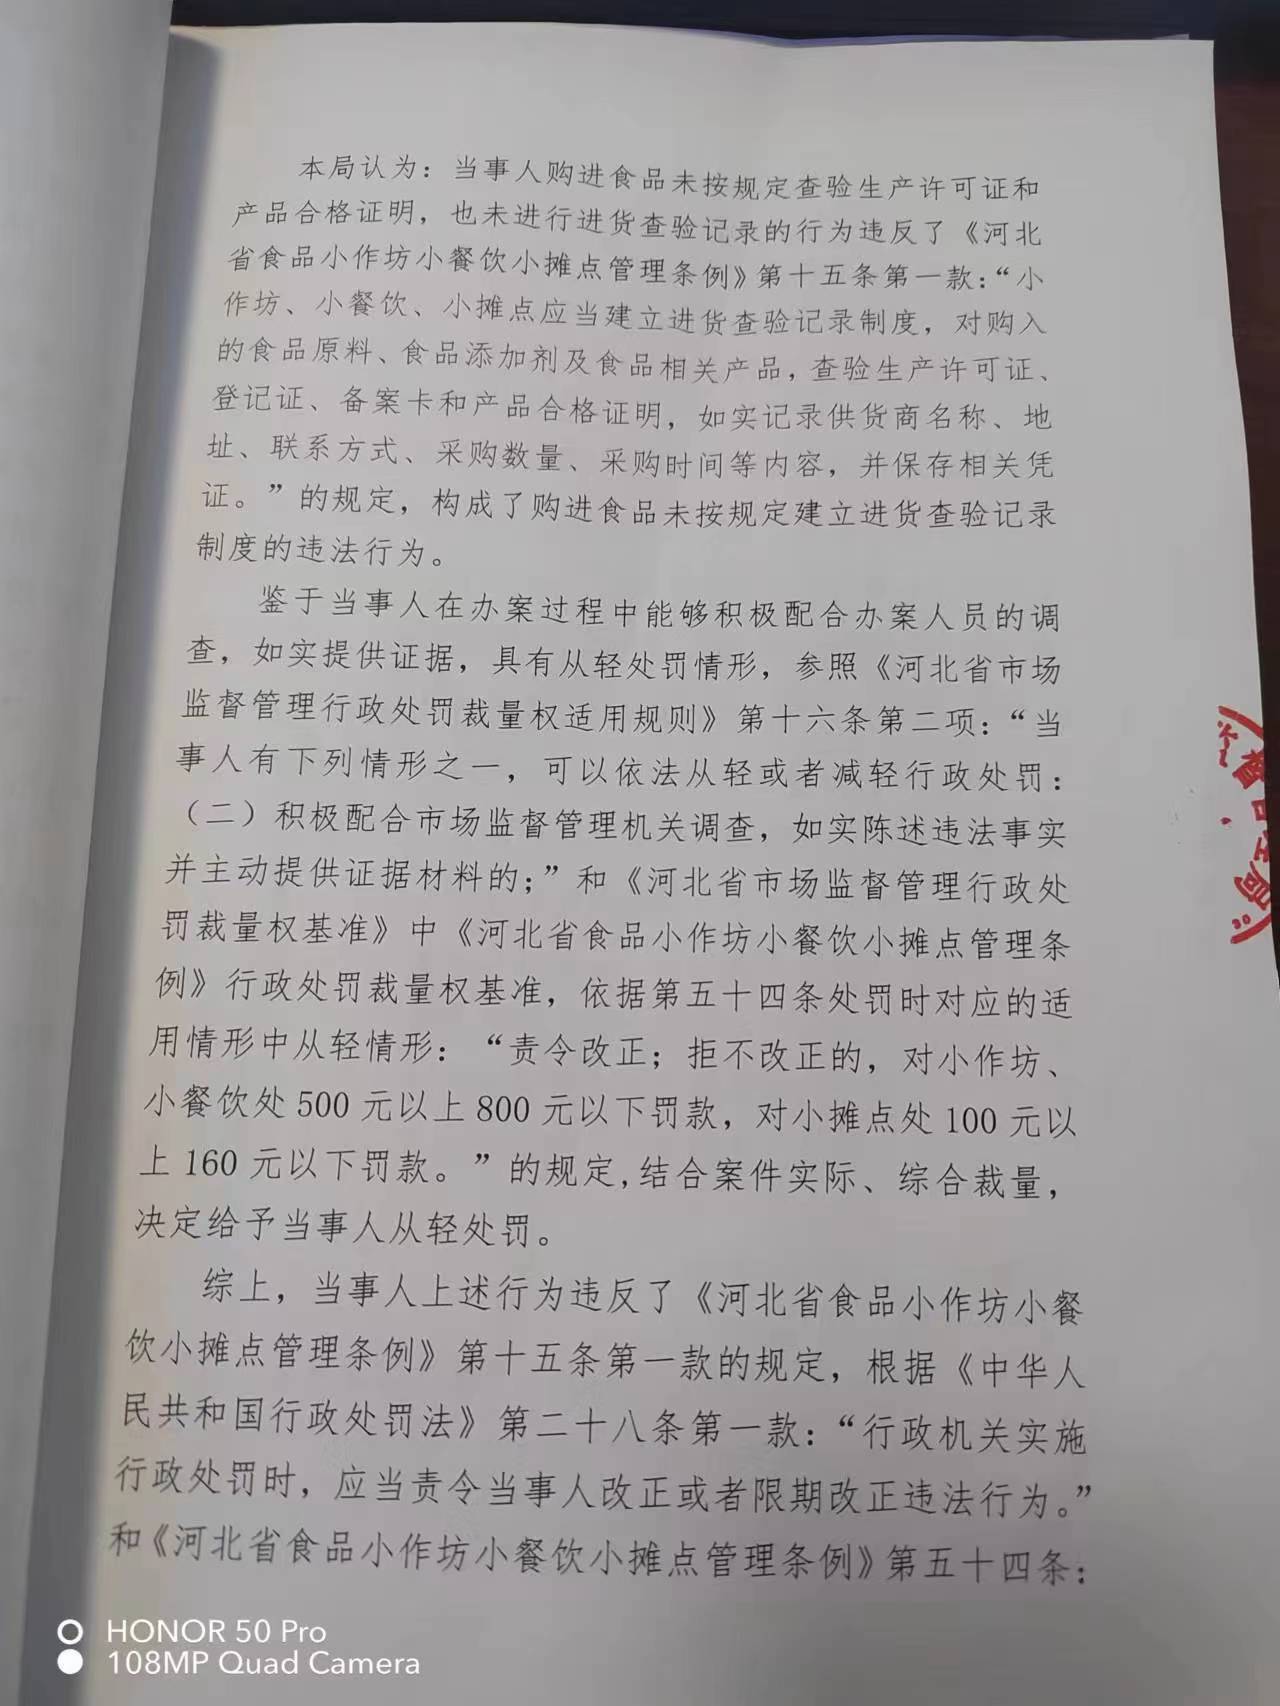 本局认为：当事人购进食品未按规定查验生产许可证和
产品合格证明，也未进行进货查验记录的行为违反了《河北
省食品小作坊小餐饮小摊点管理条例》第十五条第一款：“小
作坊、小餐饮、小摊点应当建立进货查验记录制度，对购入
的食品原料、食品添加剂及食品相关产品，查验生产许可证、
登记证、备案卡和产品合格证明，如实记录供货商名称、地
址、联系方式、采购数量、采购时间等内容，并保存相关凭
证。”的规定，构成了购进食品未按规定建立进货查验记录
制度的违法行为。
鉴于当事人在办案过程中能够积极配合办案人员的调
查，如实提供证据，具有从轻处罚情形，参照《河北省市场
监督管理行政处罚裁量权适用规则》第十六条第二项：“当
事人有下列情形之一，可以依法从轻或者减轻行政处罚：
（二）积极配合市场监督管理机关调查，如实陈述违法事实
并主动提供证据材料的；”和《河北省市场监督管理行政处
罚裁量权基准》中《河北省食品小作坊小餐饮小摊点管理条
例》行政处罚裁量权基准，依据第五十四条处罚时对应的适
用情形中从轻情形：“责令改正；拒不改正的，对小作坊、
小餐饮处500元以上800元以下罚款，对小摊点处100元以
上160元以下罚款。”的规定,结合案件实际、综合裁量，
决定给予当事人从轻处罚。
综上，当事人上述行为违反了《河北省食品小作坊小餐
饮小摊点管理条例》第十五条第一款的规定，根据《中华人
民共和国行政处罚法》第二十八条第一款：“行政机关实施
行政处罚时，应当责令当事人改正或者限期改正违法行为。”
和《河北省食品小作坊小餐饮小摊点管理条例》第五十四条：
HONOR 50 Pro
108MP Quad Camera